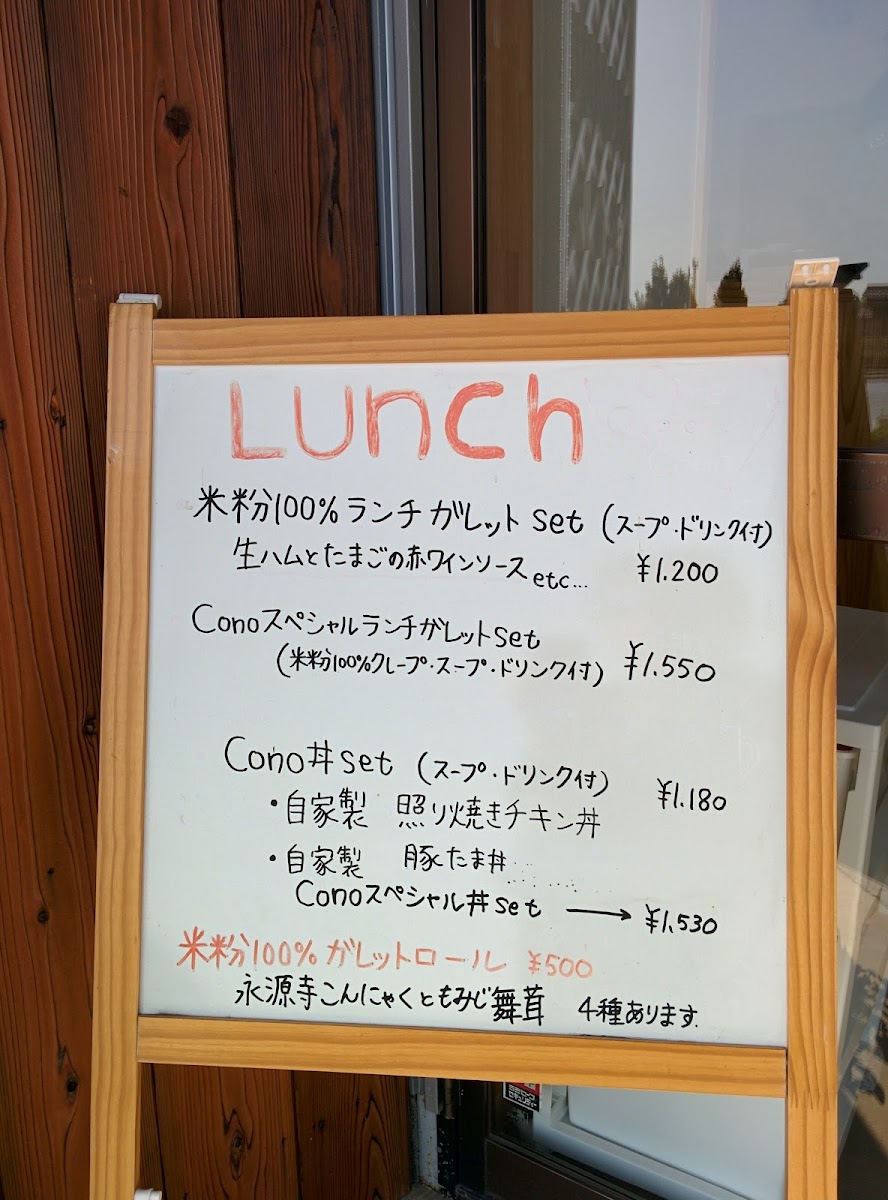 Lunch
米粉100%ランチガレットset(スープ・ドリンク付)
生ハムとたまごの赤ワインソースetc... ¥1.200
Conoスペシャルランチガレットset
(米粉100%クレープ・スープ・ドリンク付) ¥1.550
Cono丼set (スープ・ドリンク付) ¥1.180
・自家製 照り焼きチキン丼
・自家製 豚たま丼
Conoスペシャル丼set → ¥1,530
米粉100% ガレットロール ¥500
永源寺こんにゃくともみじ舞茸 4種あります.